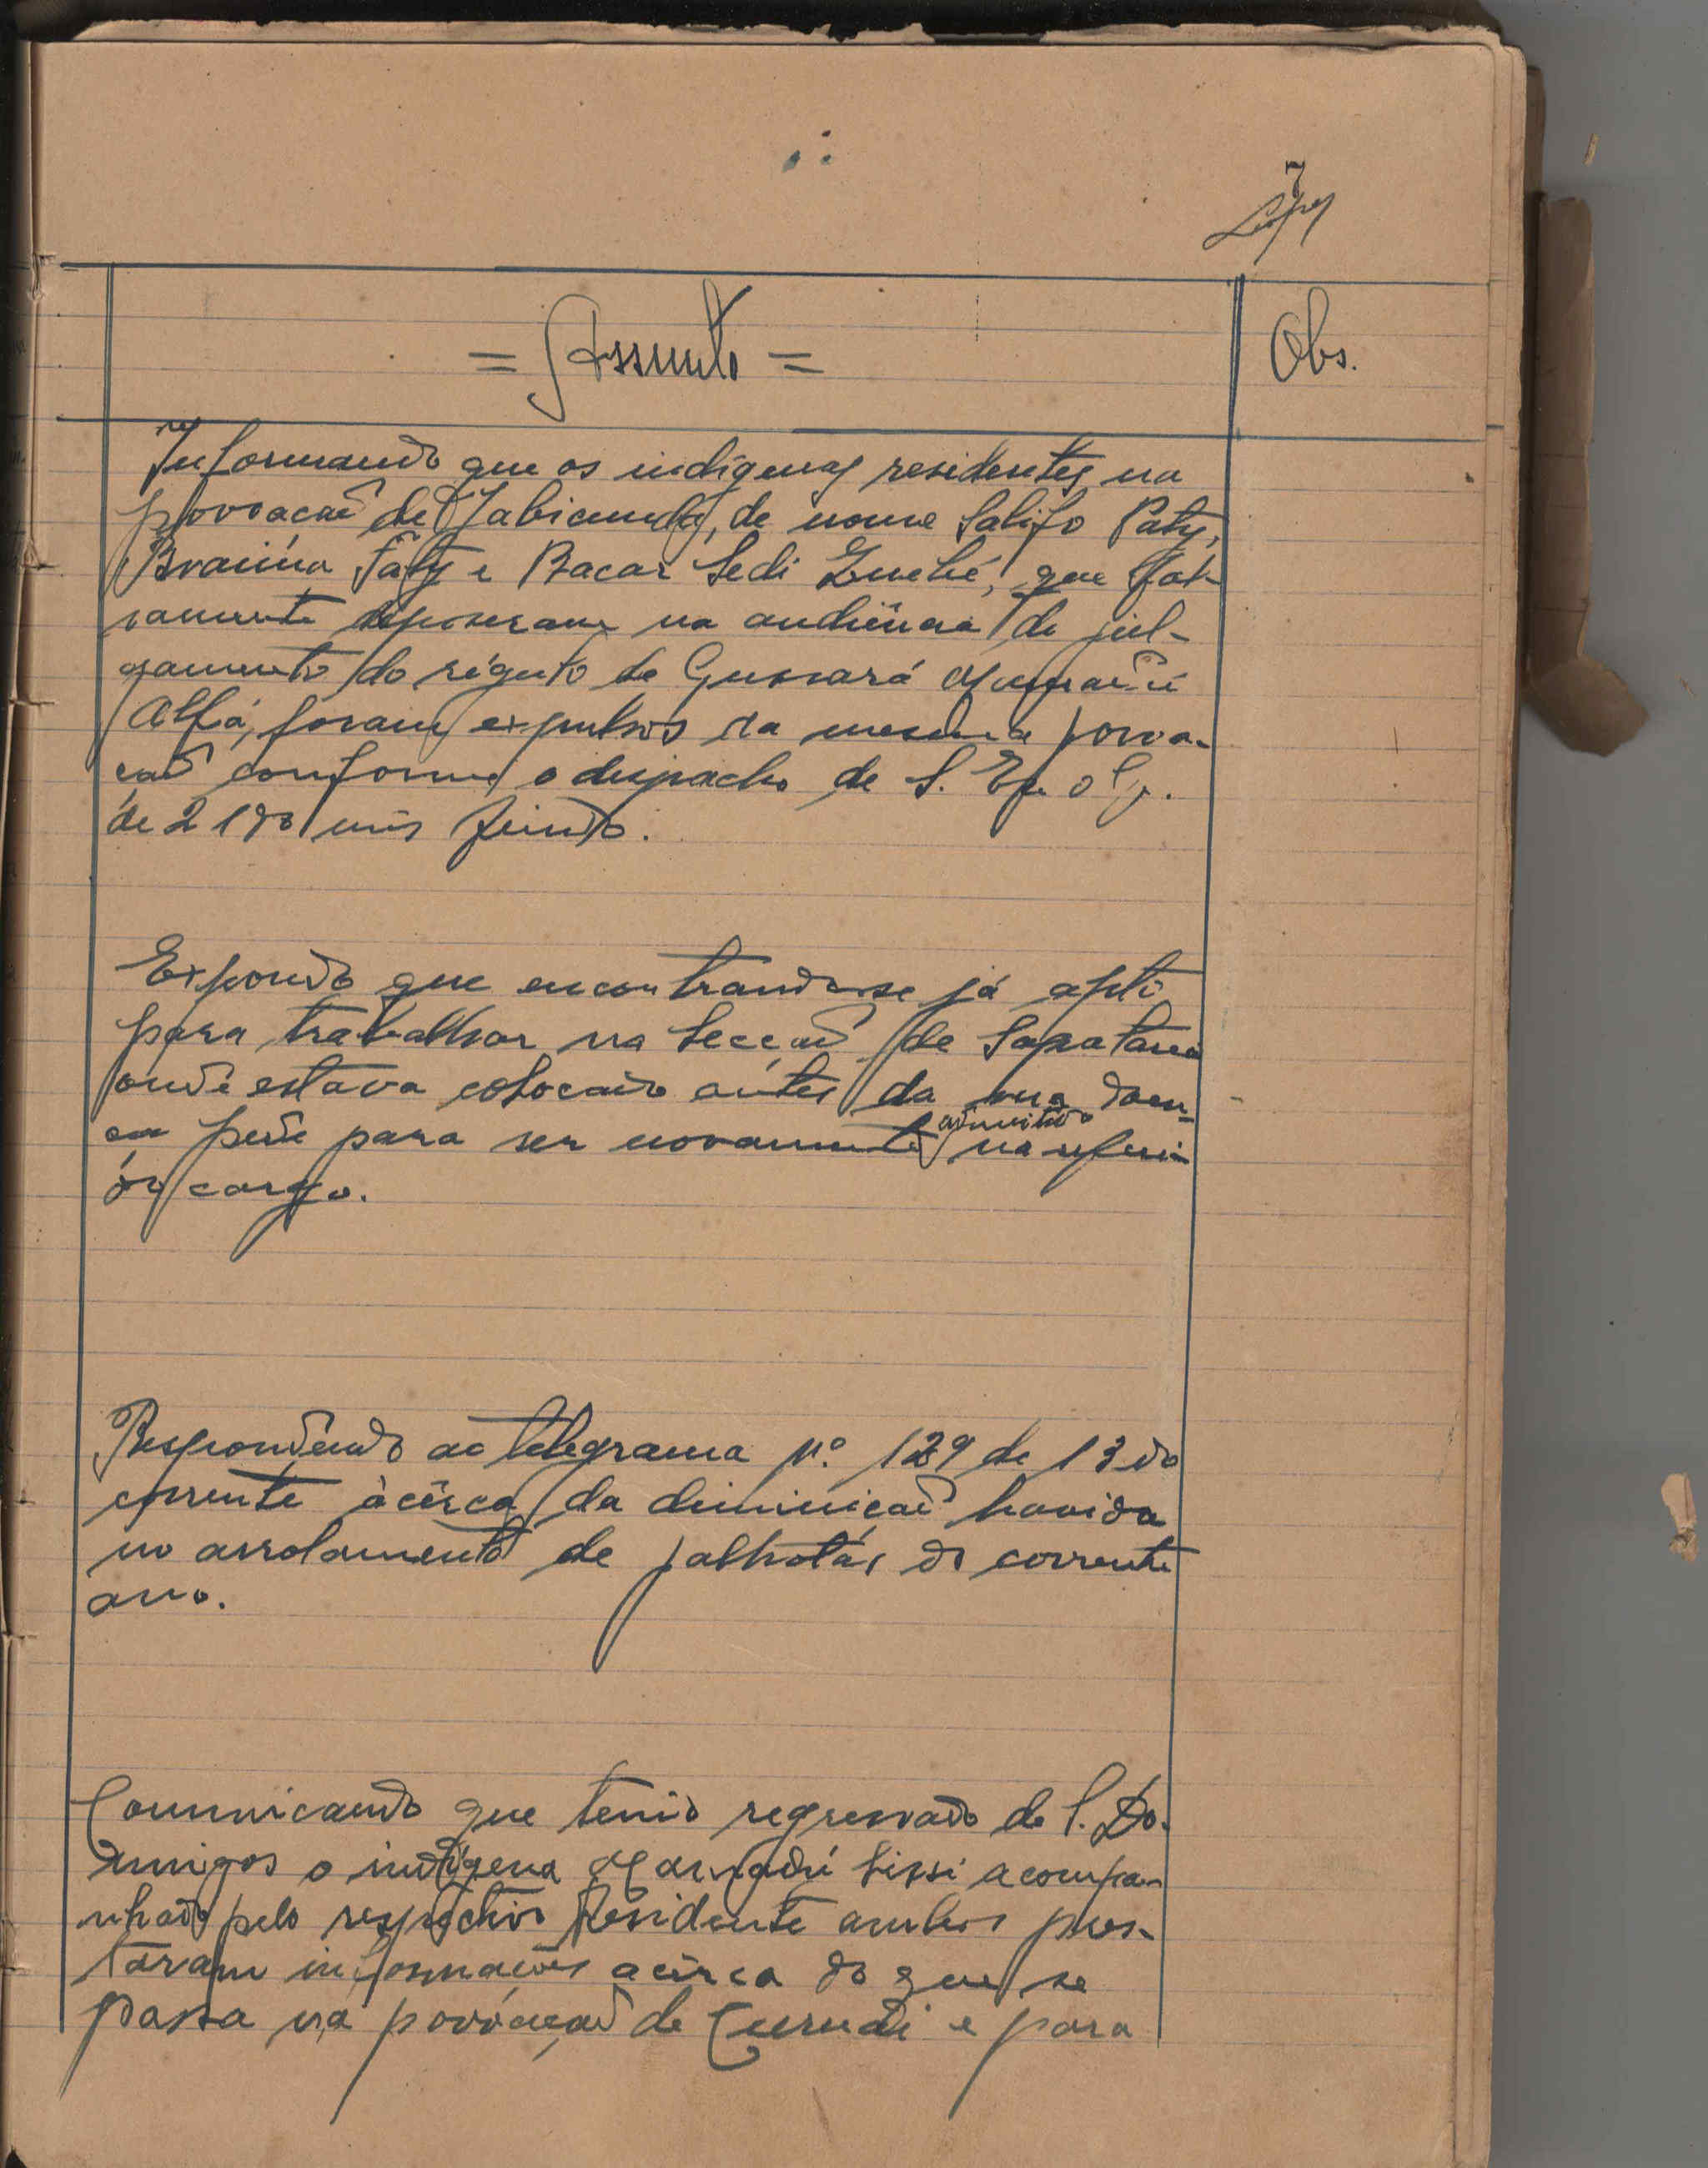 7
Lopes
= Assunto =
Obs.
Informando que os indígenas residentes na
povoação de Jabicunda, de nome Salifo Faty,
Braima Faty e Bacar Sedi, que fal-
samente deposeram na audiência de jul-
gamento do régulo de Gussará
Alfá, foram expulsos da mesma povoa-
ção conforme o despacho de S. Exª o
de 21 do mês findo.
Expondo que encontrando-se já apto
para trabalhar na Secção de Sapataria
onde estava colocado antes da sua doen-
ça pede para ser novamente admitido no referi-
do cargo.
Respondendo ao telegrama nº. 129 de 13 do
corrente àcêrca da diminuição havida
no arrolamento de palhotas do corrente
ano.
Comunicando que tendo regressado de S. Do-
mingos o indígena Mamadú Sissi acompa-
nhado pelo respectivo Residente ambos pres-
taram informações acêrca do que se
passa na povoação de e para